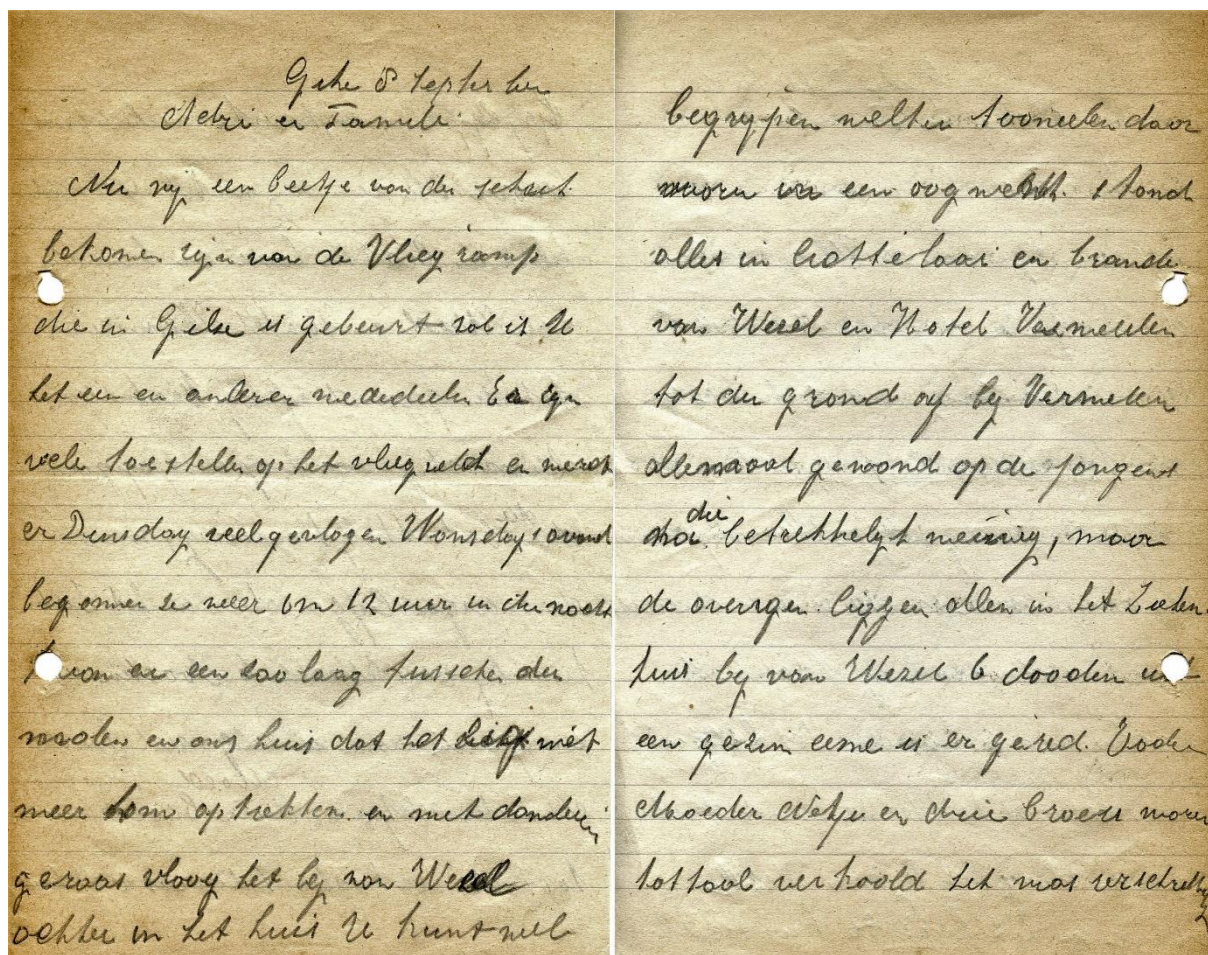 Gilze 8 September
Adrie en Familie
Nu wij een beetje van den schrik
bekomen zijn van de Vliegramp
die in Gilze is gebeurt zal ik U
het een en anderen mededeelen Er zijn
vele toestellen op het vliegveld en werdt
er Dinsdag veel gevlogen Wonsdags avond
begonnen ze weer om 12 uur in den nacht
kwam er een zoo laag tusschen den
molen en ons huis dat het niet
meer kom optrekken en met donderen
geraas vloog het bij van Wezel
achter in het huis U kunt wel
begrijpen welken tooneelen daar
waren in een oogwenk stond
alles in lichtelaai en brande
van Wezel en Hotel Vermeulen
tot den grond af bij Vermeulen
allemaal gewond op de jongens
na die betrekkelijk weinig, maar
de overigen liggen allen in het Zieken
huis bij van Wezel 6 dooden uit
een gezin eene is er gered. Vader
Moeder Netje en drie broers waren
tottaal verkoold het was verschrikkelijk